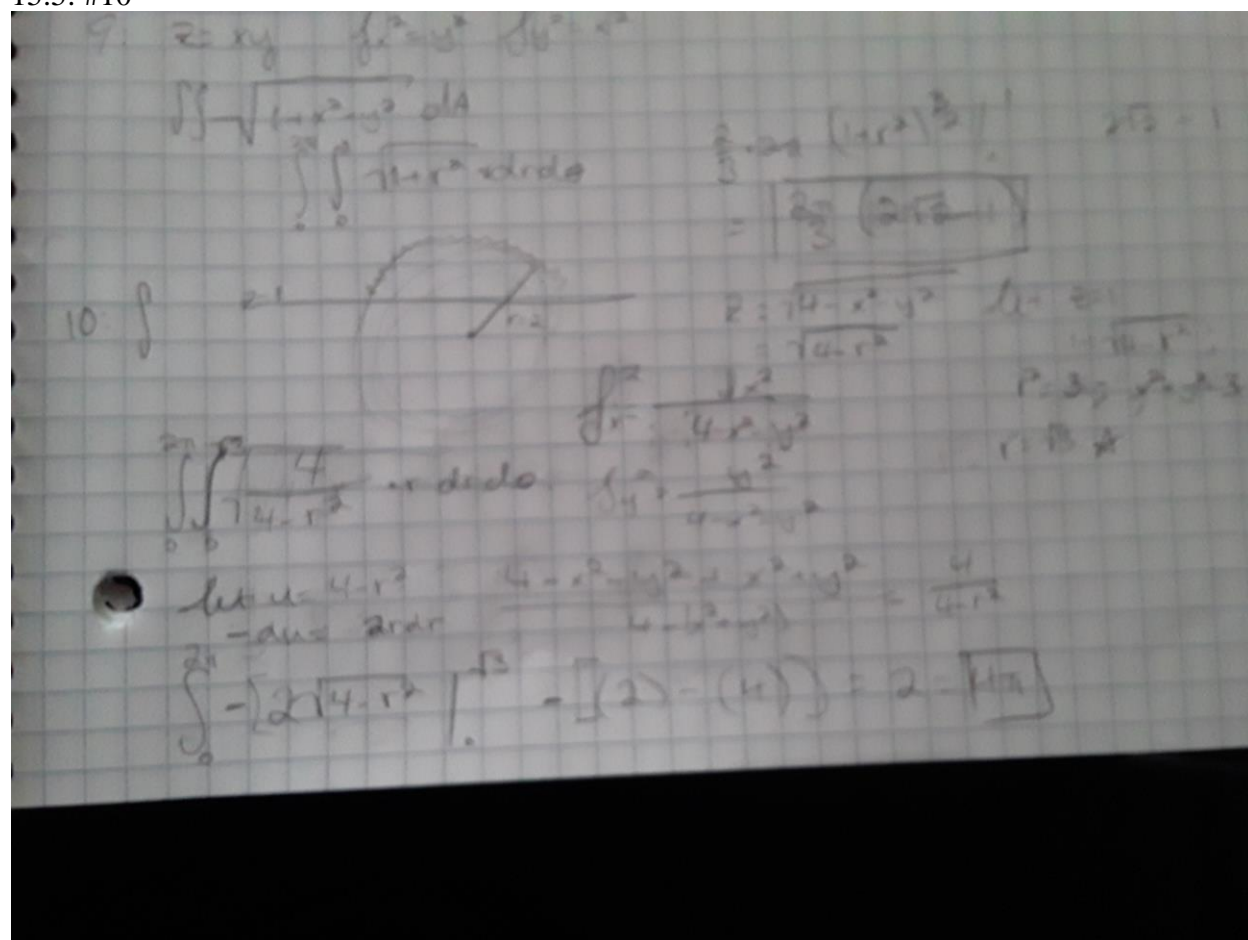 15.5: #10
9. z = xy fx² = y² fy² = x²
∬ √(1+x²+y²) dA
∫₀^2π ∫₀^1 √(1+r²) r dr dθ
(1+r²)^(3/2) |¹ 2√2 - 1
= 2π/3 (2√2 - 1)
10. ∫
z=1
r=2
z = √(4-x²-y²)
= √(4-r²)
z=1
1 = √(4-r²)
r² = 3 = x²+y²=3
r = √3
fx² = x² / (4-x²-y²)
∫₀^2π ∫₀^√3 √(4/(4-r²)) · r dr dθ
fy² = y² / (4-x²-y²)
let u = 4-r²
-du = 2rdr
(4-x²-y²+x²+y²) / (4-(x²+y²)) = 4/(4-r²)
∫₀^2π -[2√(4-r²) |₀^√3 - [(2) - (4)] = 2 = 4π